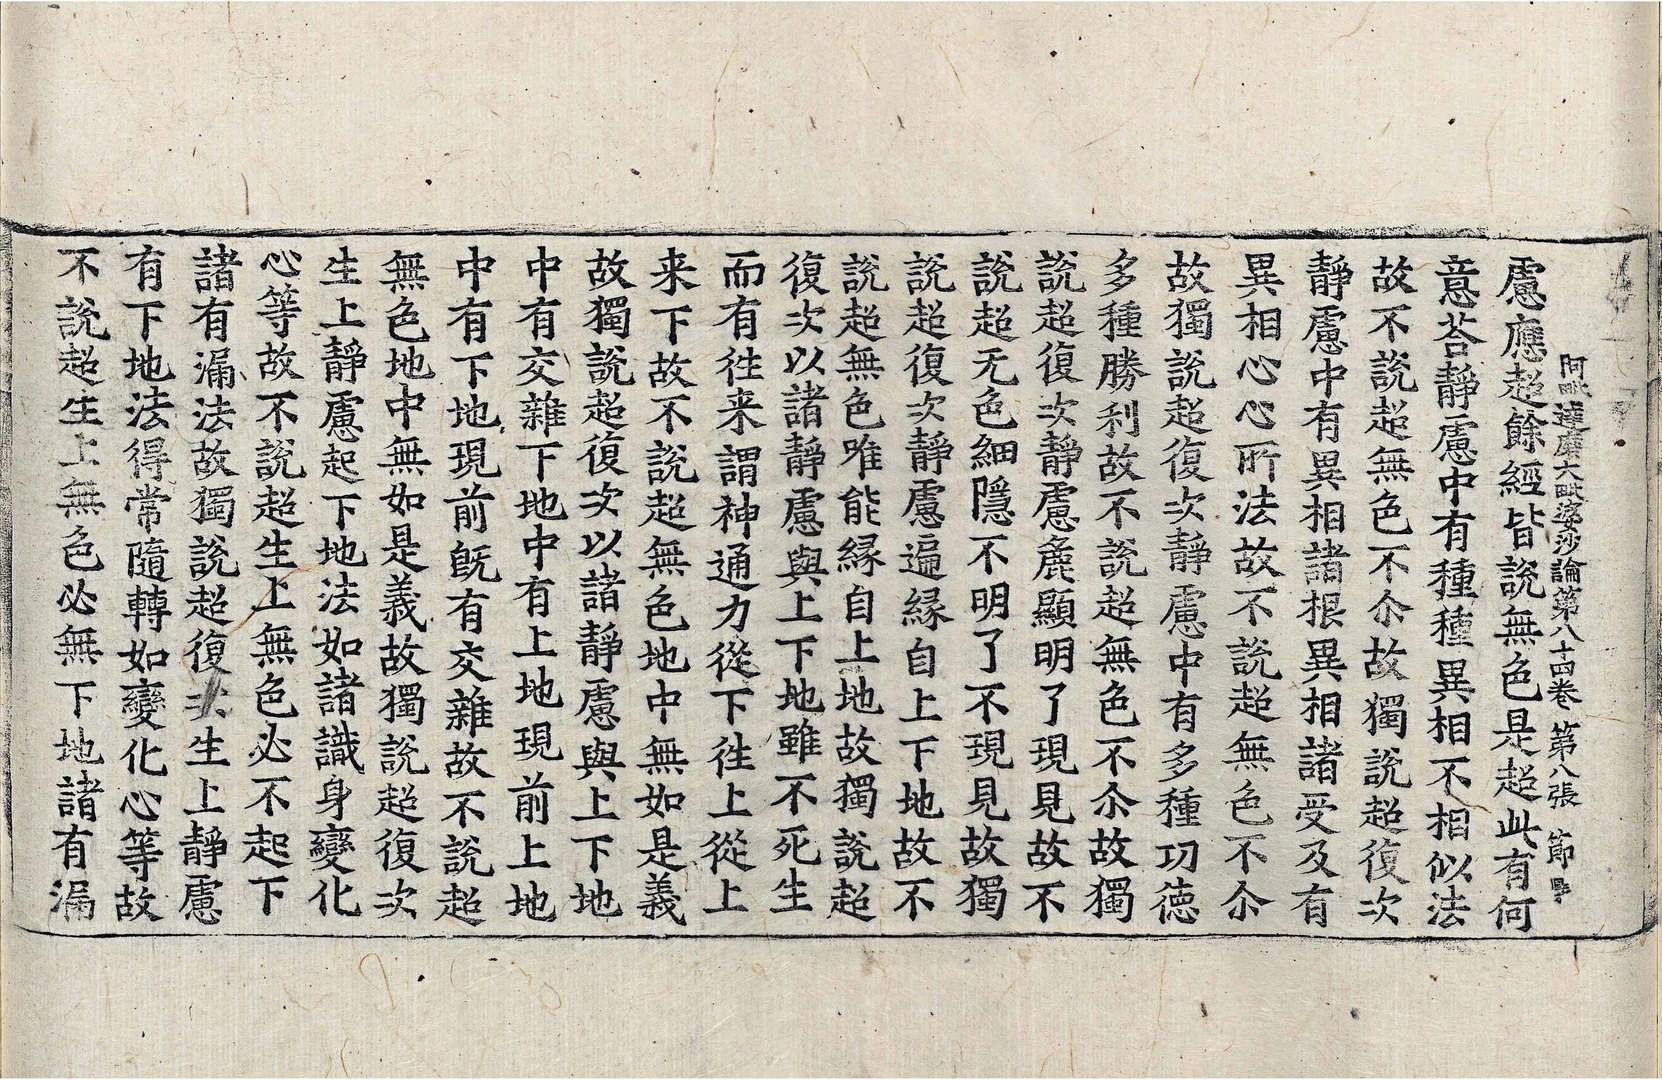 阿毗達磨大毗婆沙論第八十四卷 第八張 節
慮應超餘經皆說無色是超此有何
意荅靜慮中有種種異相不相似法
故不說超無色不尒故獨說超復次
靜慮中有異相諸根異相諸受及有
異相心心所法故不說超無色不尒
故獨說超復次靜慮中有多種功德
多種勝利故不說超無色不尒故獨
說超復次靜慮麁顯明了現見故不
說超无色細隱不明了不現見故獨
說超復次靜慮遍緣自上下地故不
說超無色唯能緣自上地故獨說超
復次以諸靜慮與上下地雖不死生
而有往来謂神通力從下往上從上
来下故不說超無色地中無如是義
故獨說超復次以諸靜慮與上下地
中有交雜下地中有上地現前上地
中有下地現前旣有交雜故不說超
無色地中無如是義故獨說超復次
生上靜慮起下地法如諸識身變化
心等故不說超生上無色必不起下
諸有漏法故獨說超復次生上靜慮
有下地法得常隨轉如變化心等故
不說超生上無色必無下地諸有漏